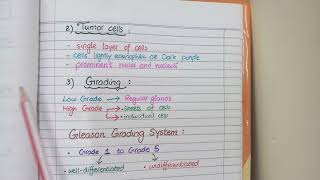 2) Tumor cells :
- single layer of cells
- cells lightly eosinophilic or Dark purple
- prominent nuclei and nucleoli
3) Grading :
Low Grade → Regular glands
High Grade → • sheets of cells
• individual cell
Gleason Grading System :
• Grade 1 to Grade 5
• well-differentiated • undifferentiated